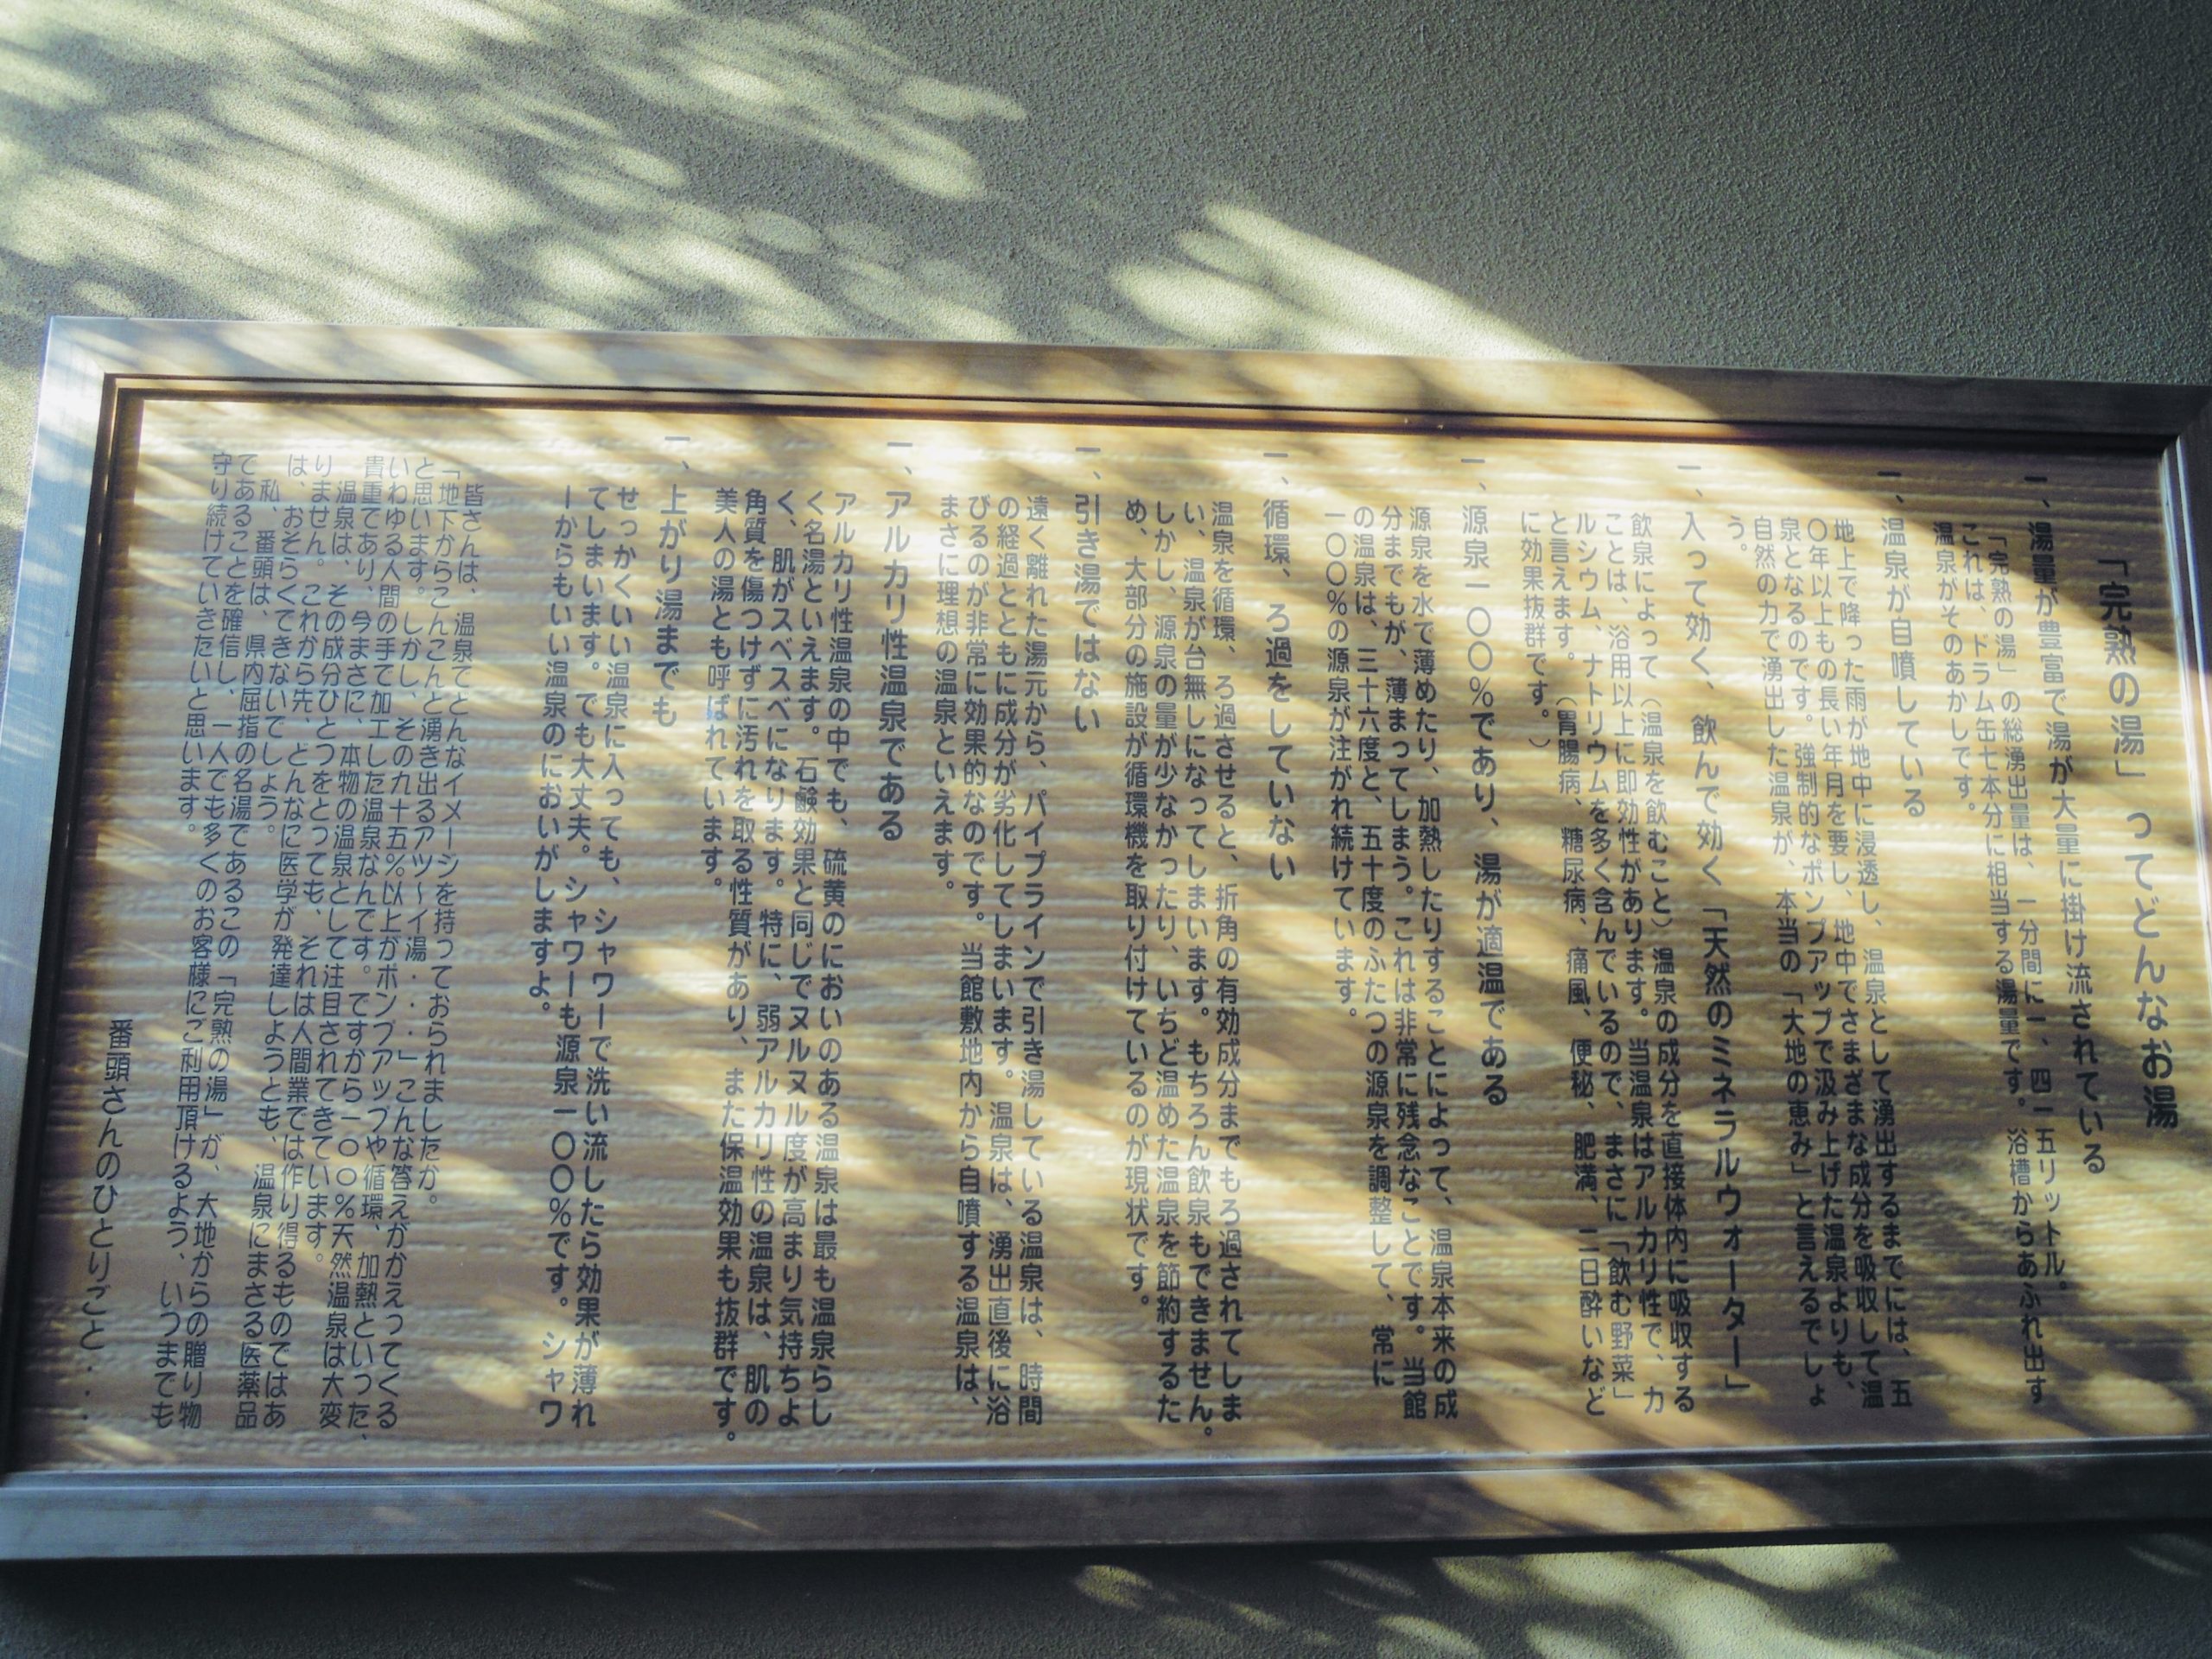 「完熟の湯」ってどんなお湯
一、湯量が豊富で湯が大量に掛け流されている
「完熟の湯」の総湧出量は、一分間に一、四一五リットル。
これは、ドラム缶七本分に相当する湯量です。浴槽からあふれ出す
温泉がそのあかしです。
一、温泉が自噴している
地上で降った雨が地中に浸透し、温泉として湧出するまでには、五
〇年以上もの長い年月を要し、地中でさまざまな成分を吸収して温
泉となるのです。強制的なポンプアップで汲み上げた温泉よりも、
自然の力で湧出した温泉が、本当の「大地の恵み」と言えるでしょ
う。
一、入って効く、飲んで効く「天然のミネラルウォーター」
飲泉によって（温泉を飲むこと）温泉の成分を直接体内に吸収する
ことは、浴用以上に即効性があります。当温泉はアルカリ性で、カ
ルシウム、ナトリウムを多く含んでいるので、まさに「飲む野菜」
と言えます。（胃腸病、糖尿病、痛風、便秘、肥満、二日酔いなど
に効果抜群です。）
一、源泉一〇〇％であり、湯が適温である
源泉を水で薄めたり、加熱したりすることによって、温泉本来の成
分までもが、薄まってしまう。これは非常に残念なことです。当館
の温泉は、三十六度と、五十度のふたつの源泉を調整して、常に
一〇〇％の源泉が注がれ続けています。
一、循環、ろ過をしていない
温泉を循環、ろ過させると、折角の有効成分までもろ過されてしま
い、温泉が台無しになってしまいます。もちろん飲泉もできません。
しかし、源泉の量が少なかったり、いちど温めた温泉を節約するた
め、大部分の施設が循環機を取り付けているのが現状です。
一、引き湯ではない
遠く離れた湯元から、パイプラインで引き湯している温泉は、時間
の経過とともに成分が劣化してしまいます。温泉は、湧出直後に浴
びるのが非常に効果的なのです。当館敷地内から自噴する温泉は、
まさに理想の温泉といえます。
一、アルカリ性温泉である
アルカリ性温泉の中でも、硫黄のにおいのある温泉は最も温泉らし
く名湯といえます。石鹸効果と同じでヌルヌル度が高まり気持ちよ
く、肌がスベスベになります。特に、弱アルカリ性の温泉は、肌の
角質を傷つけずに汚れを取る性質があり、また保温効果も抜群です。
美人の湯とも呼ばれています。
一、上がり湯までも
せっかくいい温泉に入っても、シャワーで洗い流したら効果が薄れ
てしまいます。でも大丈夫。シャワーも源泉一〇〇％です。シャワ
ーからもいい温泉のにおいがしますよ。
皆さんは、温泉でどんなイメージを持っておられましたか。
「地下からこんこんと湧き出るアツ～イ湯・・・」こんな答えがかえってくる
と思います。しかし、その九十五％以上がポンプアップや循環、加熱といった、
いわゆる人間の手で加工した温泉なんです。ですから一〇〇％天然温泉は大変
貴重であり、今まさに、本物の温泉として注目されてきています。
温泉は、その成分ひとつをとっても、それは人間業では作り得るものではあ
りません。これから先、どんなに医学が発達しようとも、温泉にまさる医薬品
は、おそらくできないでしょう。
私、番頭は、県内屈指の名湯であるこの「完熟の湯」が、大地からの贈り物
であることを確信し、一人でも多くのお客様にご利用頂けるよう、いつまでも
守り続けていきたいと思います。
番頭さんのひとりごと・・・